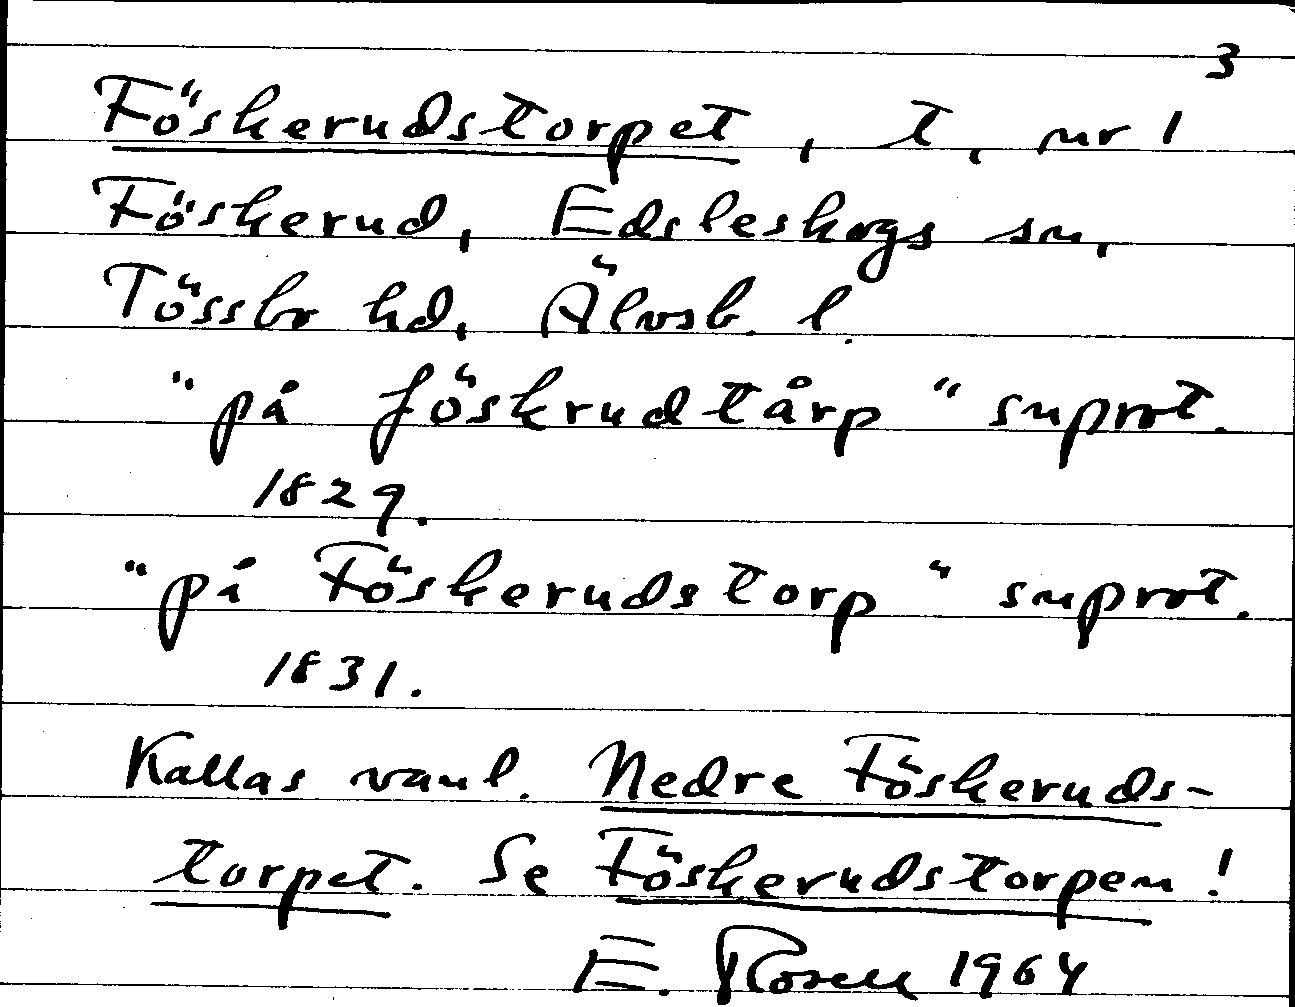 3
Föskerudstorpet, t, nr 1
Föskerud, Edsleskogs sn,
Tössbo hd, Älvsb. l.
"på föskrudtårp" snprot.
1829.
"på Föskerudstorp" snprot.
1831.
Kallas vanl. Nedre Föskeruds-
torpet. Se Föskerudstorpen!
E. Rosell 1964